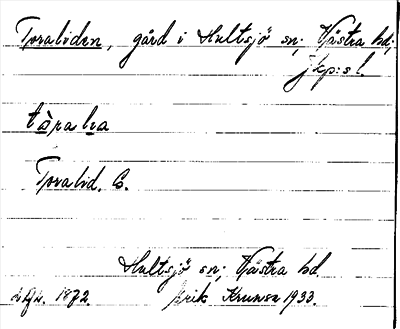 Toraliden, gård i Hultsjö sn; Västra hd;
jkp:s l.
tàralıa
Toralid. G.
Hultsjö sn; Västra hd
1872. Erik Krunsen 1933.